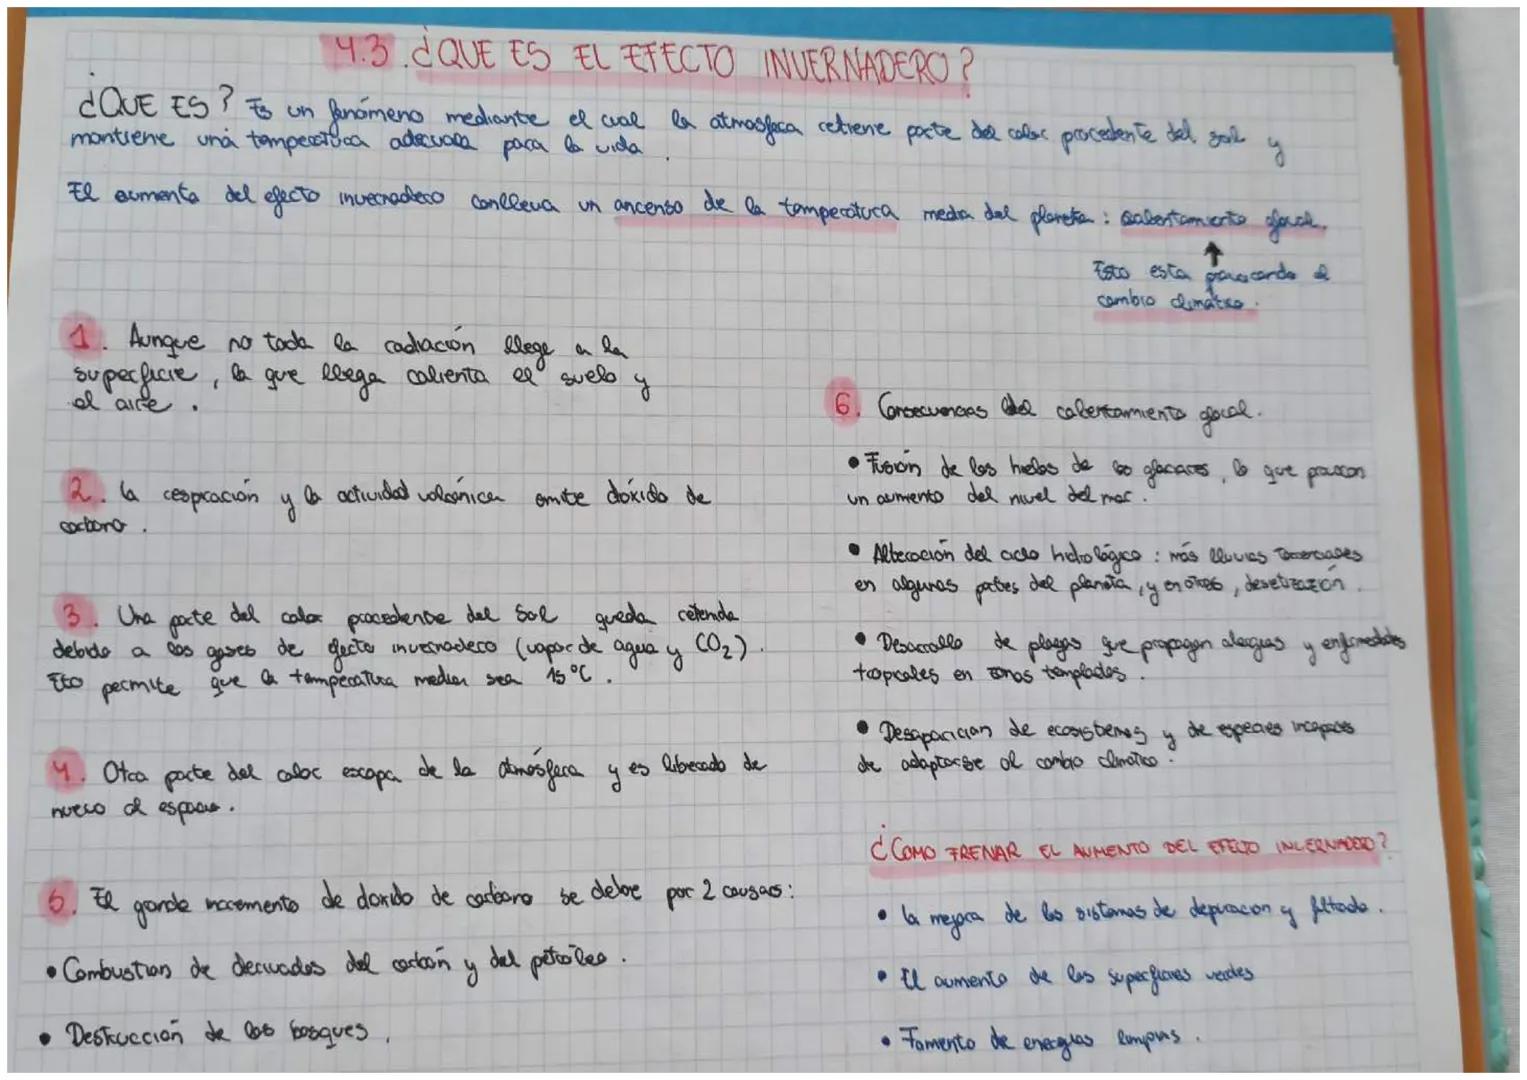 4.3. ¿QUE ES EL EFECTO INVERNADERO?
¿QUE ES? Es un fenómeno mediante el cual la atmosfera retiene parte del calor procedente del sol y
mantiene una temperatura adecuada para la vida.
El aumento del efecto invernadero conlleva un ancenso de la temperatura media del planeta: calentamiento global.
Esto esta provocando el
cambio climático.
1. Aunque no toda la radiación llege a la
superficie, la que llega calienta el suelo y
el aire.
2. la respiración y la actividad volcánica emite dióxido de
carbono.
3. Una parte del calor procedente del Sol queda retenida
debido a los gases de efecto invernadero (vapor de agua y CO₂).
Esto permite que la temperatura media sea 15°C.
4. Otra parte del calor escapa de la atmósfera y es liberado de
nuevo al espacio.
5. El grande incremento de dioxido de carbono se debe por 2 causas:
• Combustion de derivados del carbón y del petroleo.
• Destrucción de los bosques.
6. Consecuencias del calentamiento global.
• Fusión de los hielos de los glaciares, lo que provoca
un aumento del nivel del mar.
• Alteración del ciclo hidrológico: más lluvias torrenciales
en algunas partes del planeta, y en otras, desertización.
• Desarrollo de plagas que propagan alergias y enfermedades
tropicales en zonas templadas.
• Desaparicion de ecosistemas y de especies incapaces
de adaptarse al cambio climatico.
¿COMO FRENAR EL AUMENTO DEL EFECTO INVERNADERO?
• la mejora de los sistemas de depuracion y filtrado.
• El aumento de las superficies verdes
• Fomento de energias limpias.